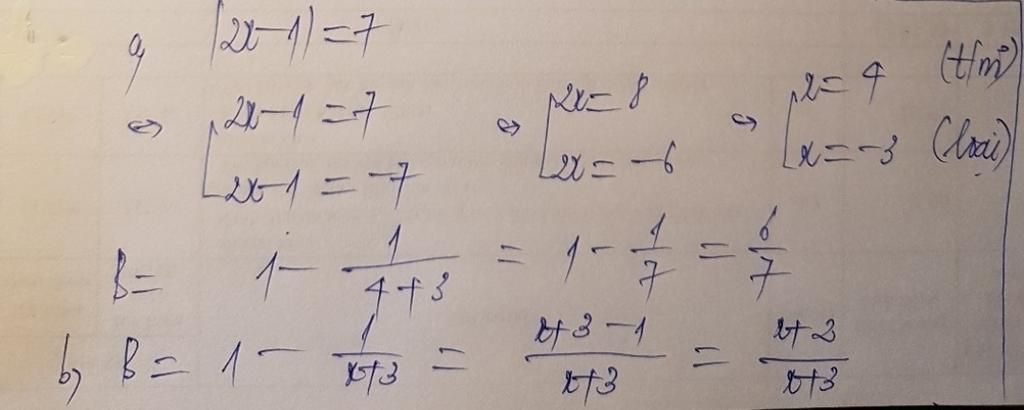 a, |2x-1| = 7
⇔ [2x-1 = 7 ⇔ [2x = 8 ⇔ [x = 4 (t/m)
2x-1 = -7 2x = -6 x = -3 (loại)
B = 1 - 1/(4+3) = 1 - 1/7 = 6/7
b, B = 1 - 1/(x+3) = (x+3-1)/(x+3) = (x+2)/(x+3)